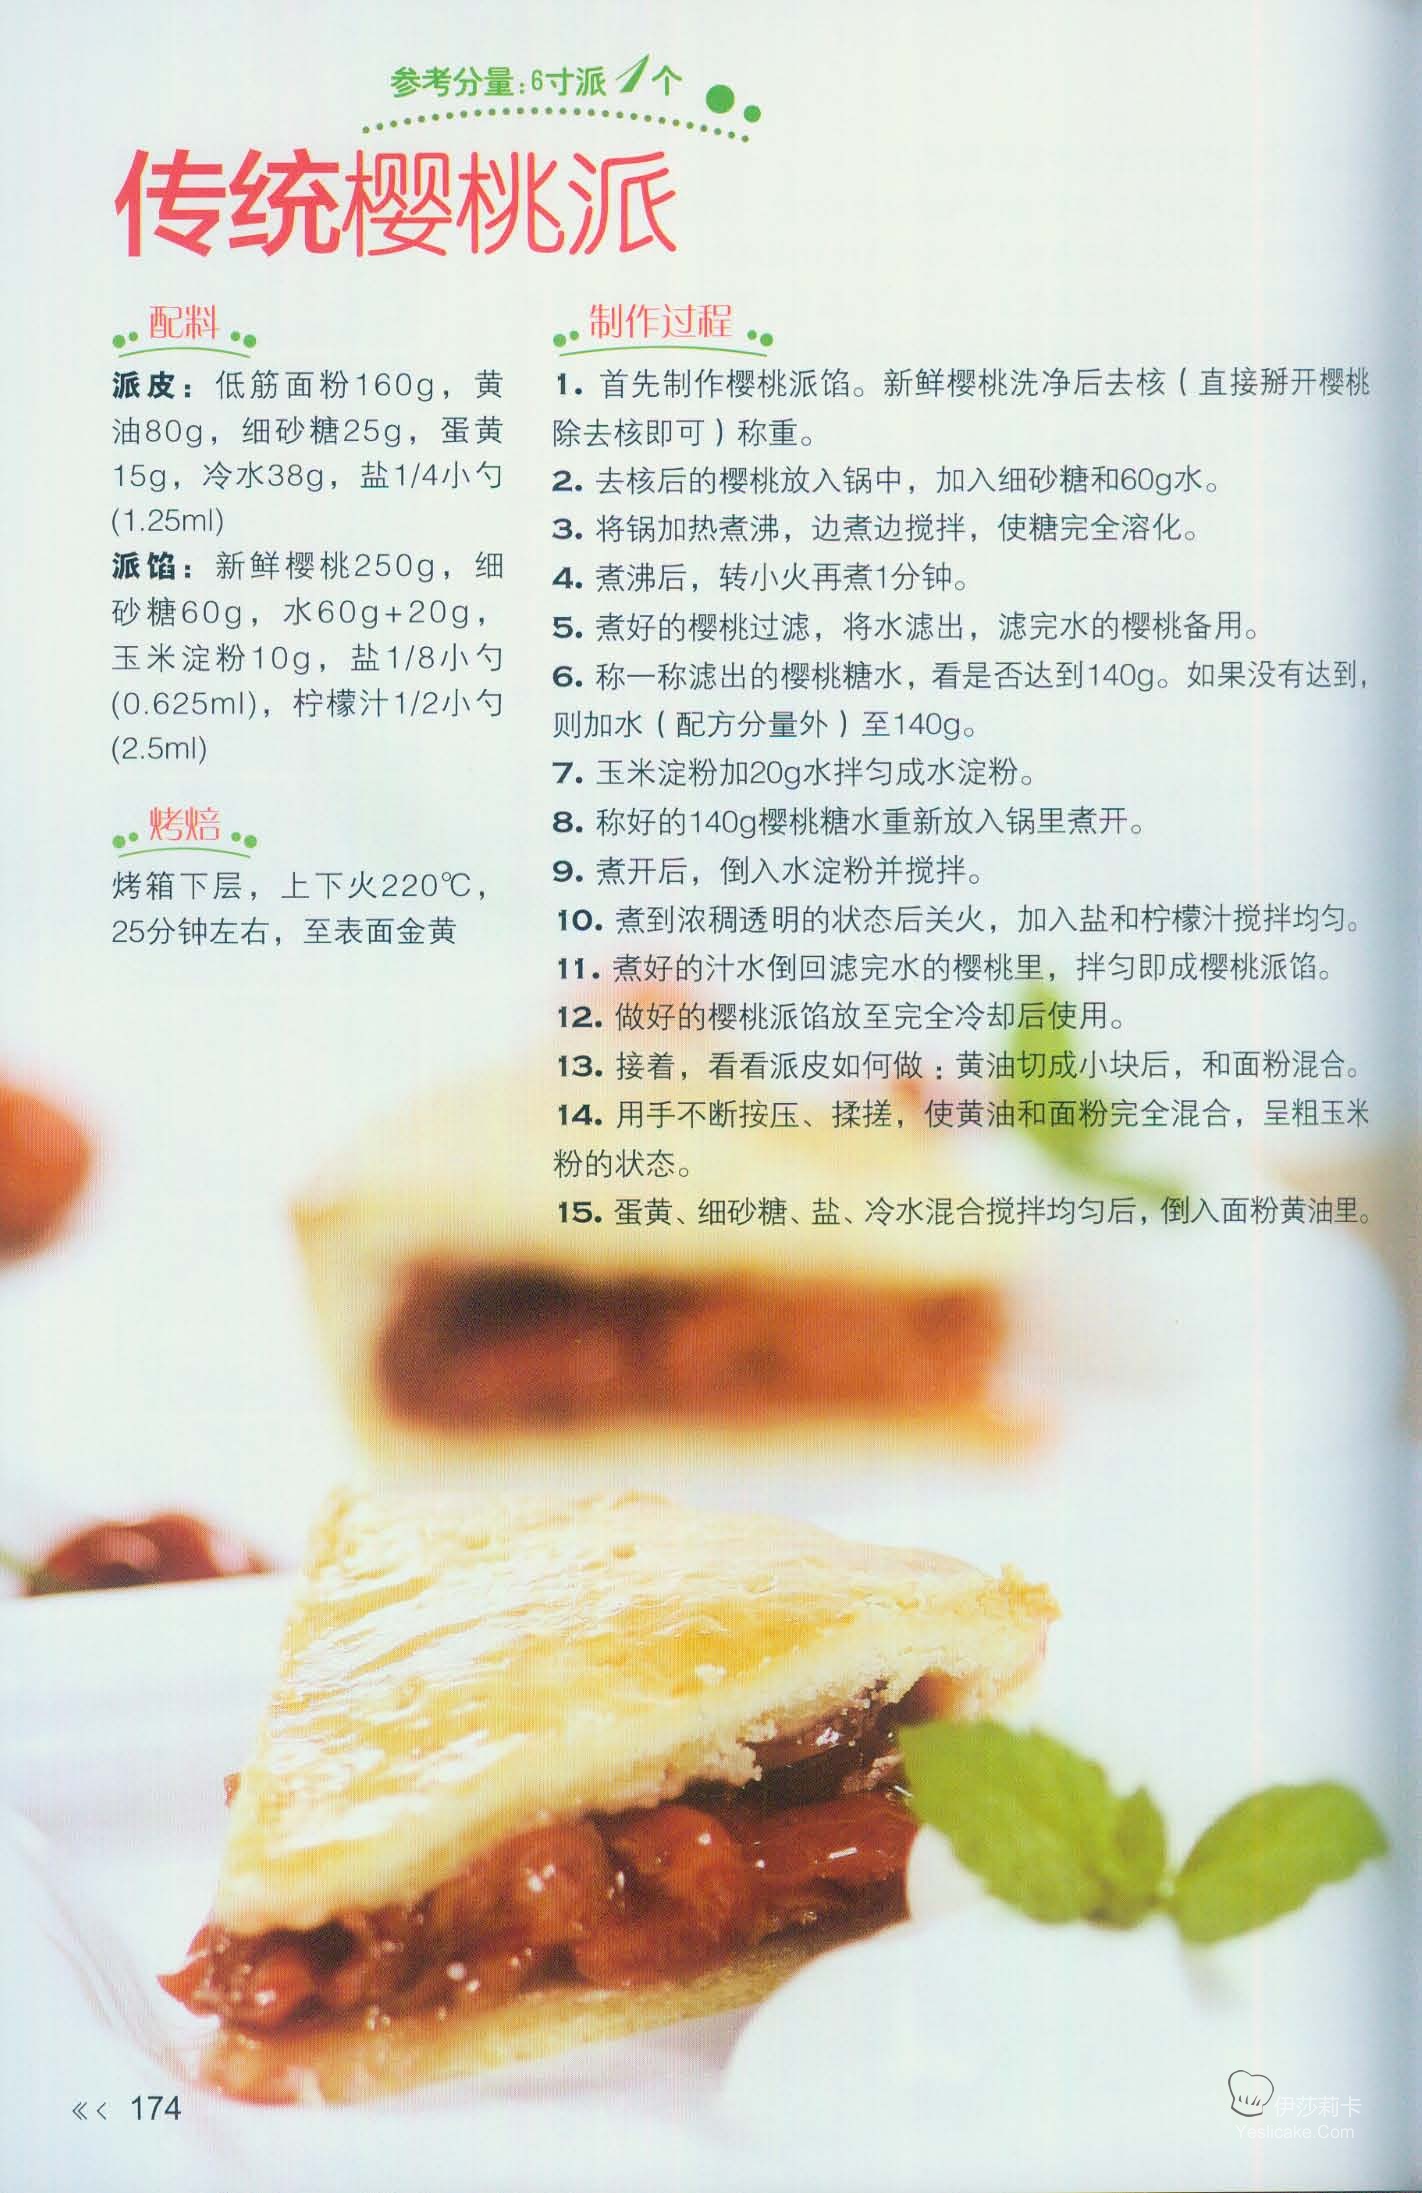 参考分量:6寸派1个
传统樱桃派
配料
派皮：低筋面粉160g，黄
油80g，细砂糖25g，蛋黄
15g，冷水38g，盐1/4小勺
(1.25ml)
派馅：新鲜樱桃250g，细
砂糖60g，水60g+20g，
玉米淀粉10g，盐1/8小勺
(0.625ml)，柠檬汁1/2小勺
(2.5ml)
烤焙
烤箱下层，上下火220℃，
25分钟左右，至表面金黄
制作过程
1. 首先制作樱桃派馅。新鲜樱桃洗净后去核（直接掰开樱桃
除去核即可）称重。
2. 去核后的樱桃放入锅中，加入细砂糖和60g水。
3. 将锅加热煮沸，边煮边搅拌，使糖完全溶化。
4. 煮沸后，转小火再煮1分钟。
5. 煮好的樱桃过滤，将水滤出，滤完水的樱桃备用。
6. 称一称滤出的樱桃糖水，看是否达到140g。如果没有达到，
则加水（配方分量外）至140g。
7. 玉米淀粉加20g水拌匀成水淀粉。
8. 称好的140g樱桃糖水重新放入锅里煮开。
9. 煮开后，倒入水淀粉并搅拌。
10. 煮到浓稠透明的状态后关火，加入盐和柠檬汁搅拌均匀。
11. 煮好的汁水倒回滤完水的樱桃里，拌匀即成樱桃派馅。
12. 做好的樱桃派馅放至完全冷却后使用。
13. 接着，看看派皮如何做：黄油切成小块后，和面粉混合。
14. 用手不断按压、揉搓，使黄油和面粉完全混合，呈粗玉米
粉的状态。
15. 蛋黄、细砂糖、盐、冷水混合搅拌均匀后，倒入面粉黄油里。
《< 174
伊莎莉卡
Yeslicake.Com